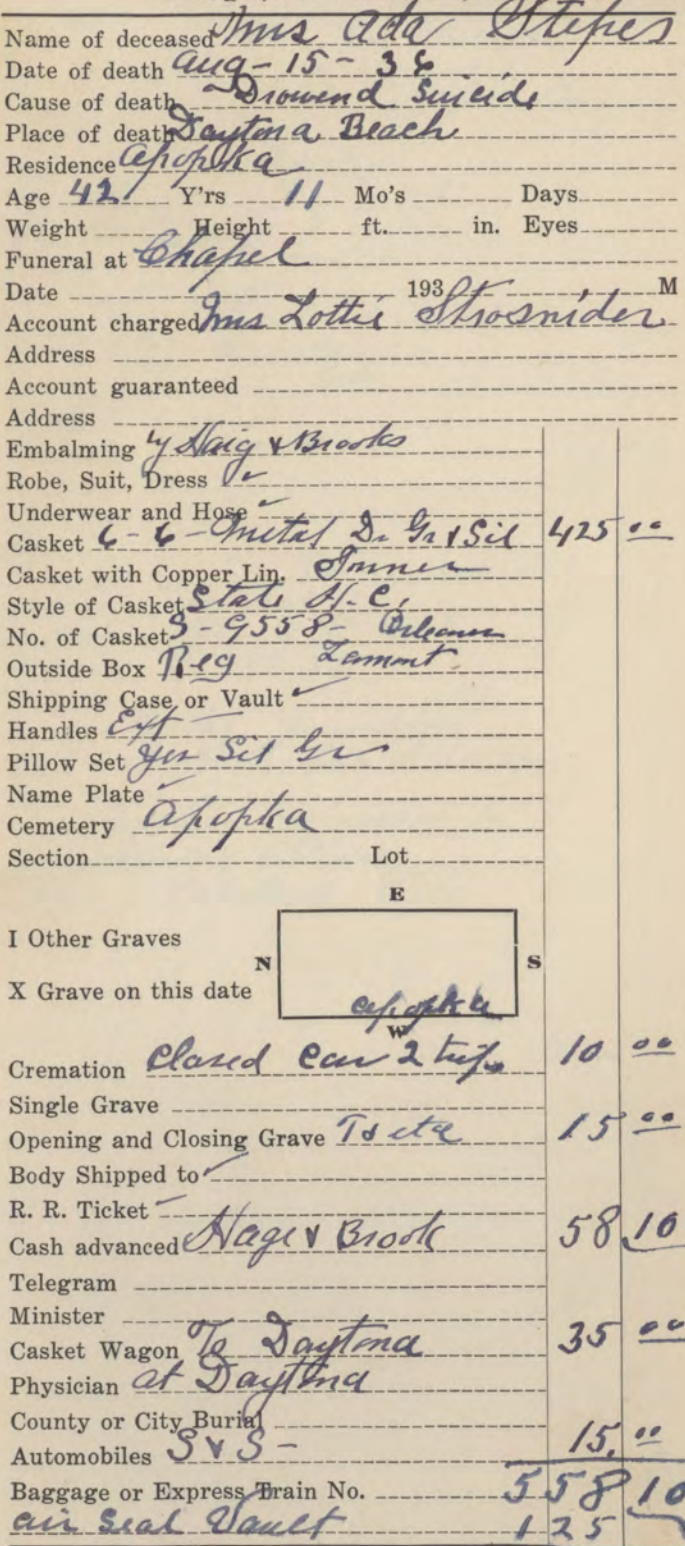 Name of deceased Mrs Ada Stepes
Date of death Aug - 15 - 36
Cause of death Drowend Suicide
Place of death Daytona Beach
Residence Apopka
Age 42 Y'rs 11 Mo's Days
Weight Height ft. in. Eyes
Funeral at Chapel
Date 193 M
Account charged Mrs Lottie Strosnider
Address
Account guaranteed
Address
Embalming by Haig & Brooks
Robe, Suit, Dress ✓
Underwear and Hose ✓
Casket 6-6- Metal Dr Gr & Sil 425 00
Casket with Copper Lin. Inner
Style of Casket State H.C.
No. of Casket S-9558- Orleans
Outside Box Reg Lamont
Shipping Case or Vault ✓
Handles Ext
Pillow Set yes Sil Gr
Name Plate
Cemetery Apopka
Section Lot
E
I Other Graves
N S
X Grave on this date
Apopka
W
Cremation Closed Car 2 trips 10 00
Single Grave
Opening and Closing Grave 15 00
Body Shipped to ✓
R. R. Ticket
Cash advanced Hage & Brook 58 10
Telegram
Minister
Casket Wagon To Daytona 35 00
Physician at Daytona
County or City Burial
Automobiles S & S - 15.00
Baggage or Express Train No. 558 10
air seal Vault 125